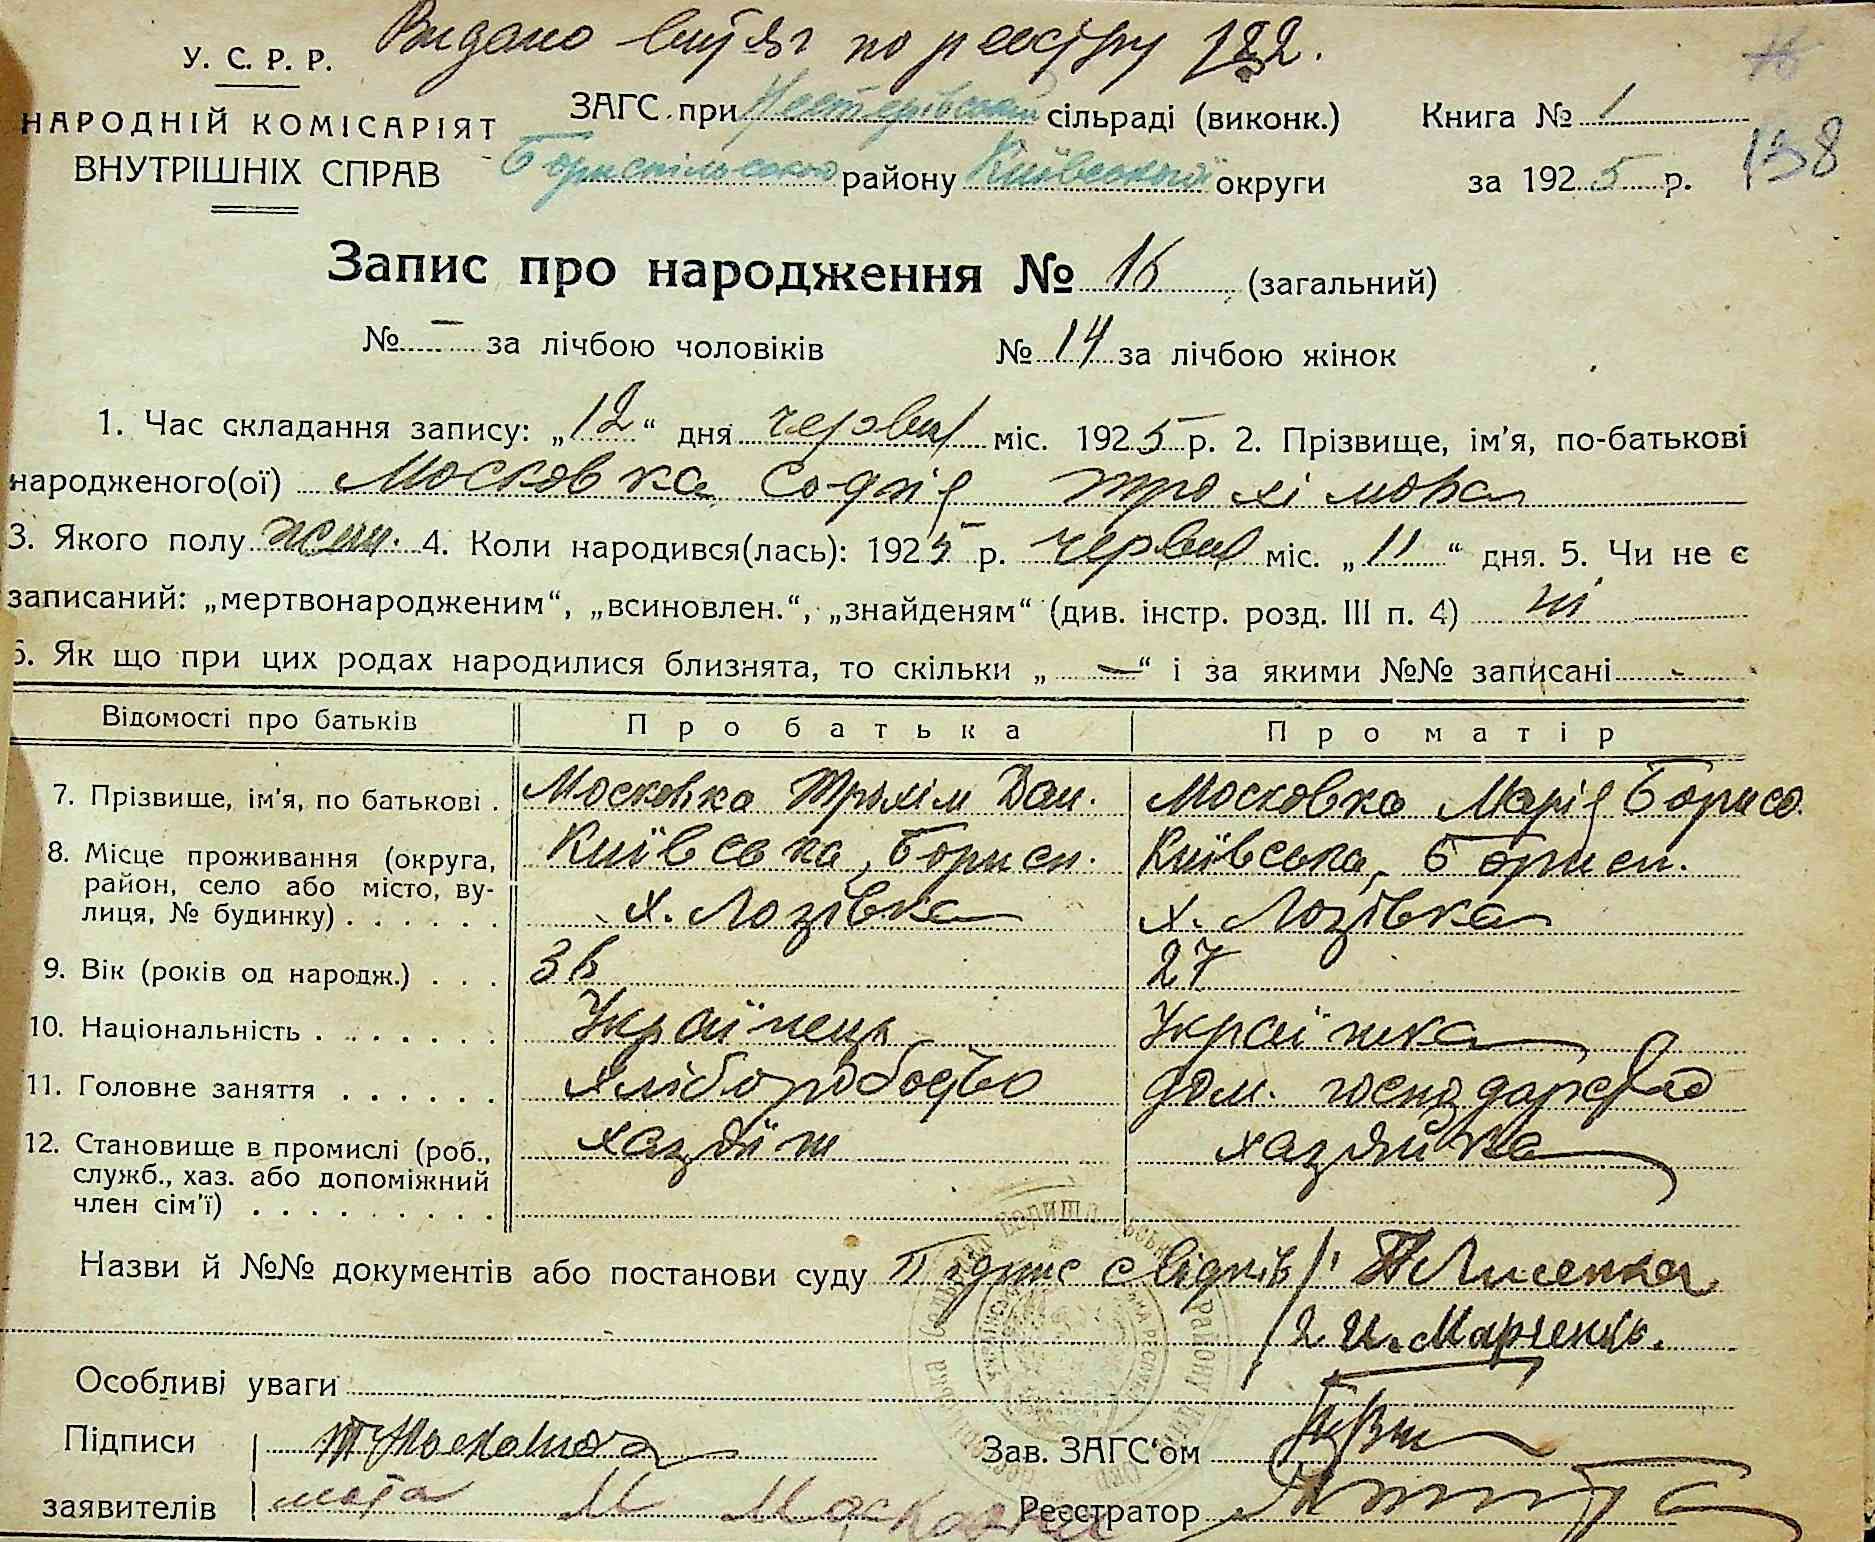 Видано витяг по реєстру 122.
У. С. Р. Р.
НАРОДНІЙ КОМІСАРІЯТ
ВНУТРІШНІХ СПРАВ
ЗАГС при Нестерівській сільраді (виконк.)
Бориспільського району Київської округи
Книга № 1
за 1925 р.
16
138
Запис про народження № 16 (загальний)
№ – за лічбою чоловіків № 14 за лічбою жінок
1. Час складання запису: „12“ дня червня міс. 1925 р. 2. Прізвище, ім'я, по-батькові
народженого(ої) Московка Софія Трохімова
3. Якого полу жін. 4. Коли народився(лась): 1925 р. червня міс. „11“ дня. 5. Чи не є
записаний: „мертвонародженим“, „всиновлен.“, „знайденям“ (див. інстр. розд. III п. 4) ні
6. Як що при цих родах народилися близнята, то скільки „—“ і за якими №№ записані -
Відомості про батьків Про батька Про матір
7. Прізвище, ім'я, по батькові . Московка Трохім Дан. Московка Марія Борисо.
8. Місце проживання (округа, район, село або місто, ву-
лиця, № будинку) . . . . . . Київська, Борисп. х. Лозівка Київська, Борисп. х. Лозівка
9. Вік (років од народж.) . . . 36 27
10. Національність . . . . . . . Українець Українка
11. Головне заняття . . . . . . хліборобство дом. господарство
12. Становище в промислі (роб.,
служб., хаз. або допоміжний
член сім'ї) . . . . . . . . . хазяїн хазяйка
Назви й №№ документів або постанови суду Підпис свідків / 1 Лисенка
/ 2. И. Марченко.
Особливі уваги
Підписи Т Московка Зав. ЗАГС'ом
заявителів М Московка Реєстратор